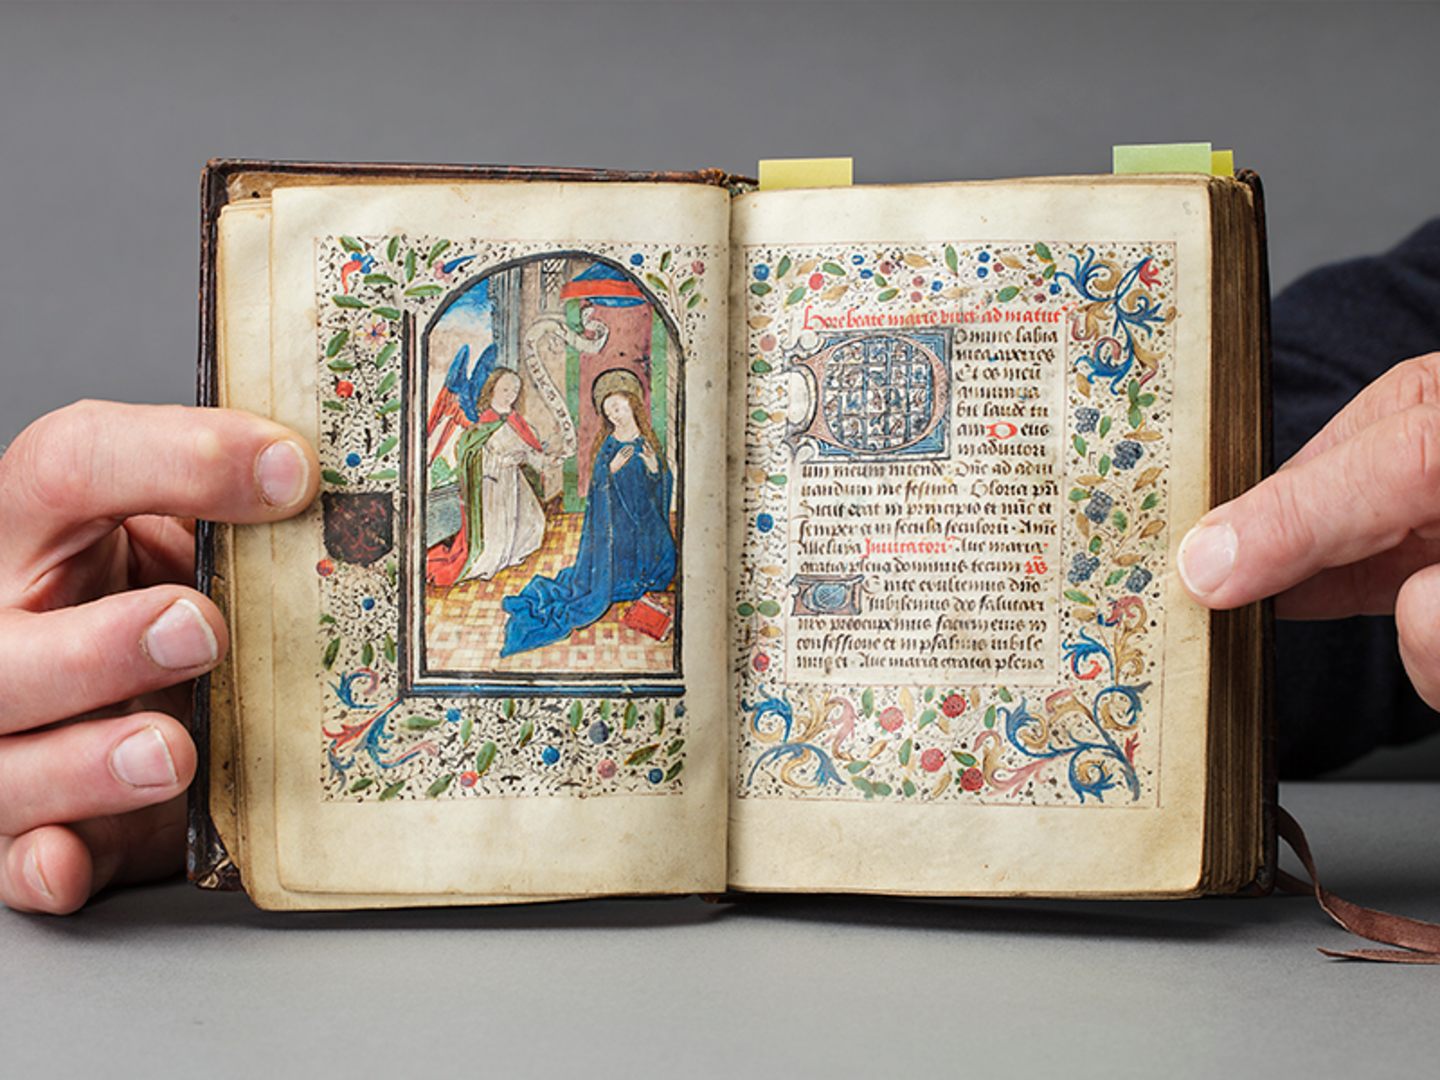 Hore beate marie virgĩs ad matut
Domine labia
mea aperies
Et os meũ
annuncia
bit laudẽ tu
am Deus
in adiutori
um meum intende Dñe ad adiu
uandum me festina Gloria pri
Sicut erat in principio et nũc et
semper et in secula seculorũ Amẽ
Alleluya Inuitatoriũ Aue maria
gratia plena dominus tecum ps
Uenite exultemus dño
iubilemus deo salutari
nro preocupemus faciem eius in
confessione et in psalmis iubile
mus ei Aue maria gratia plena